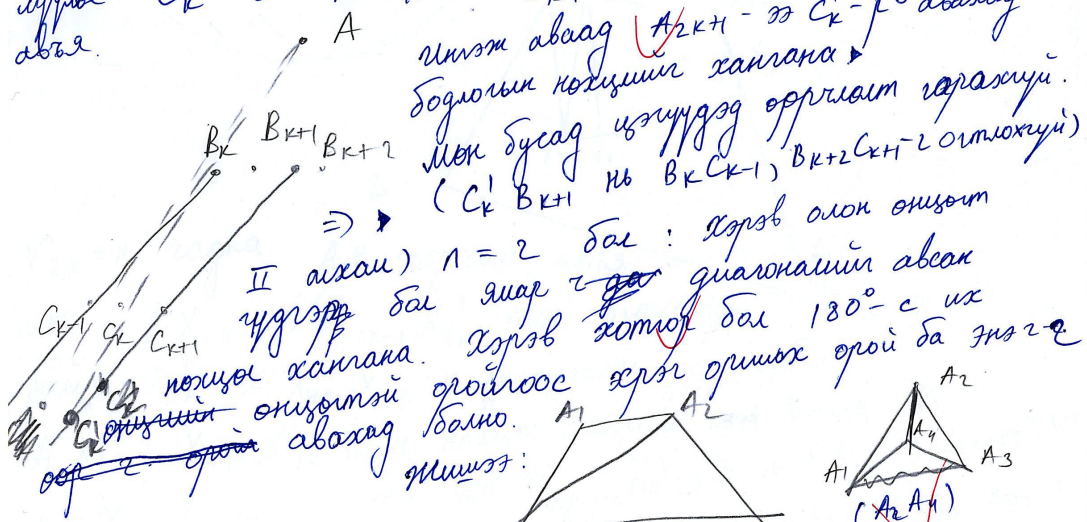 авъя.
A
Ингэж аваад A₂ₖ₊₁ - ээ Cₖ' - г авахад
бодлогын нөхцлийг хангана
Мөн бусад цэгүүдэд өөрчлөлт гарахгүй.
(Cₖ' Bₖ₊₁ нь BₖCₖ₋₁, Bₖ₊₂Cₖ₊₁ - г огтлохгүй)
Bₖ Bₖ₊₁ Bₖ₊₂
=>
II алхам) n = 2 бол : Хэрэв олон өнцөгт
гүдгэр бол ямар ч диагоналийг авсан
Cₖ₋₁ Cₖ Cₖ₊₁
нөхцөл хангана. Хэрэв хотгор бол 180° - с их
өнцөгтэй оройгоос эсрэг орших орой ба энэ 2-г
Cₖ'
авахад болно.
Жишээ:
A₁ A₂
A₂
A₄
A₁ A₃
(A₂A₄)